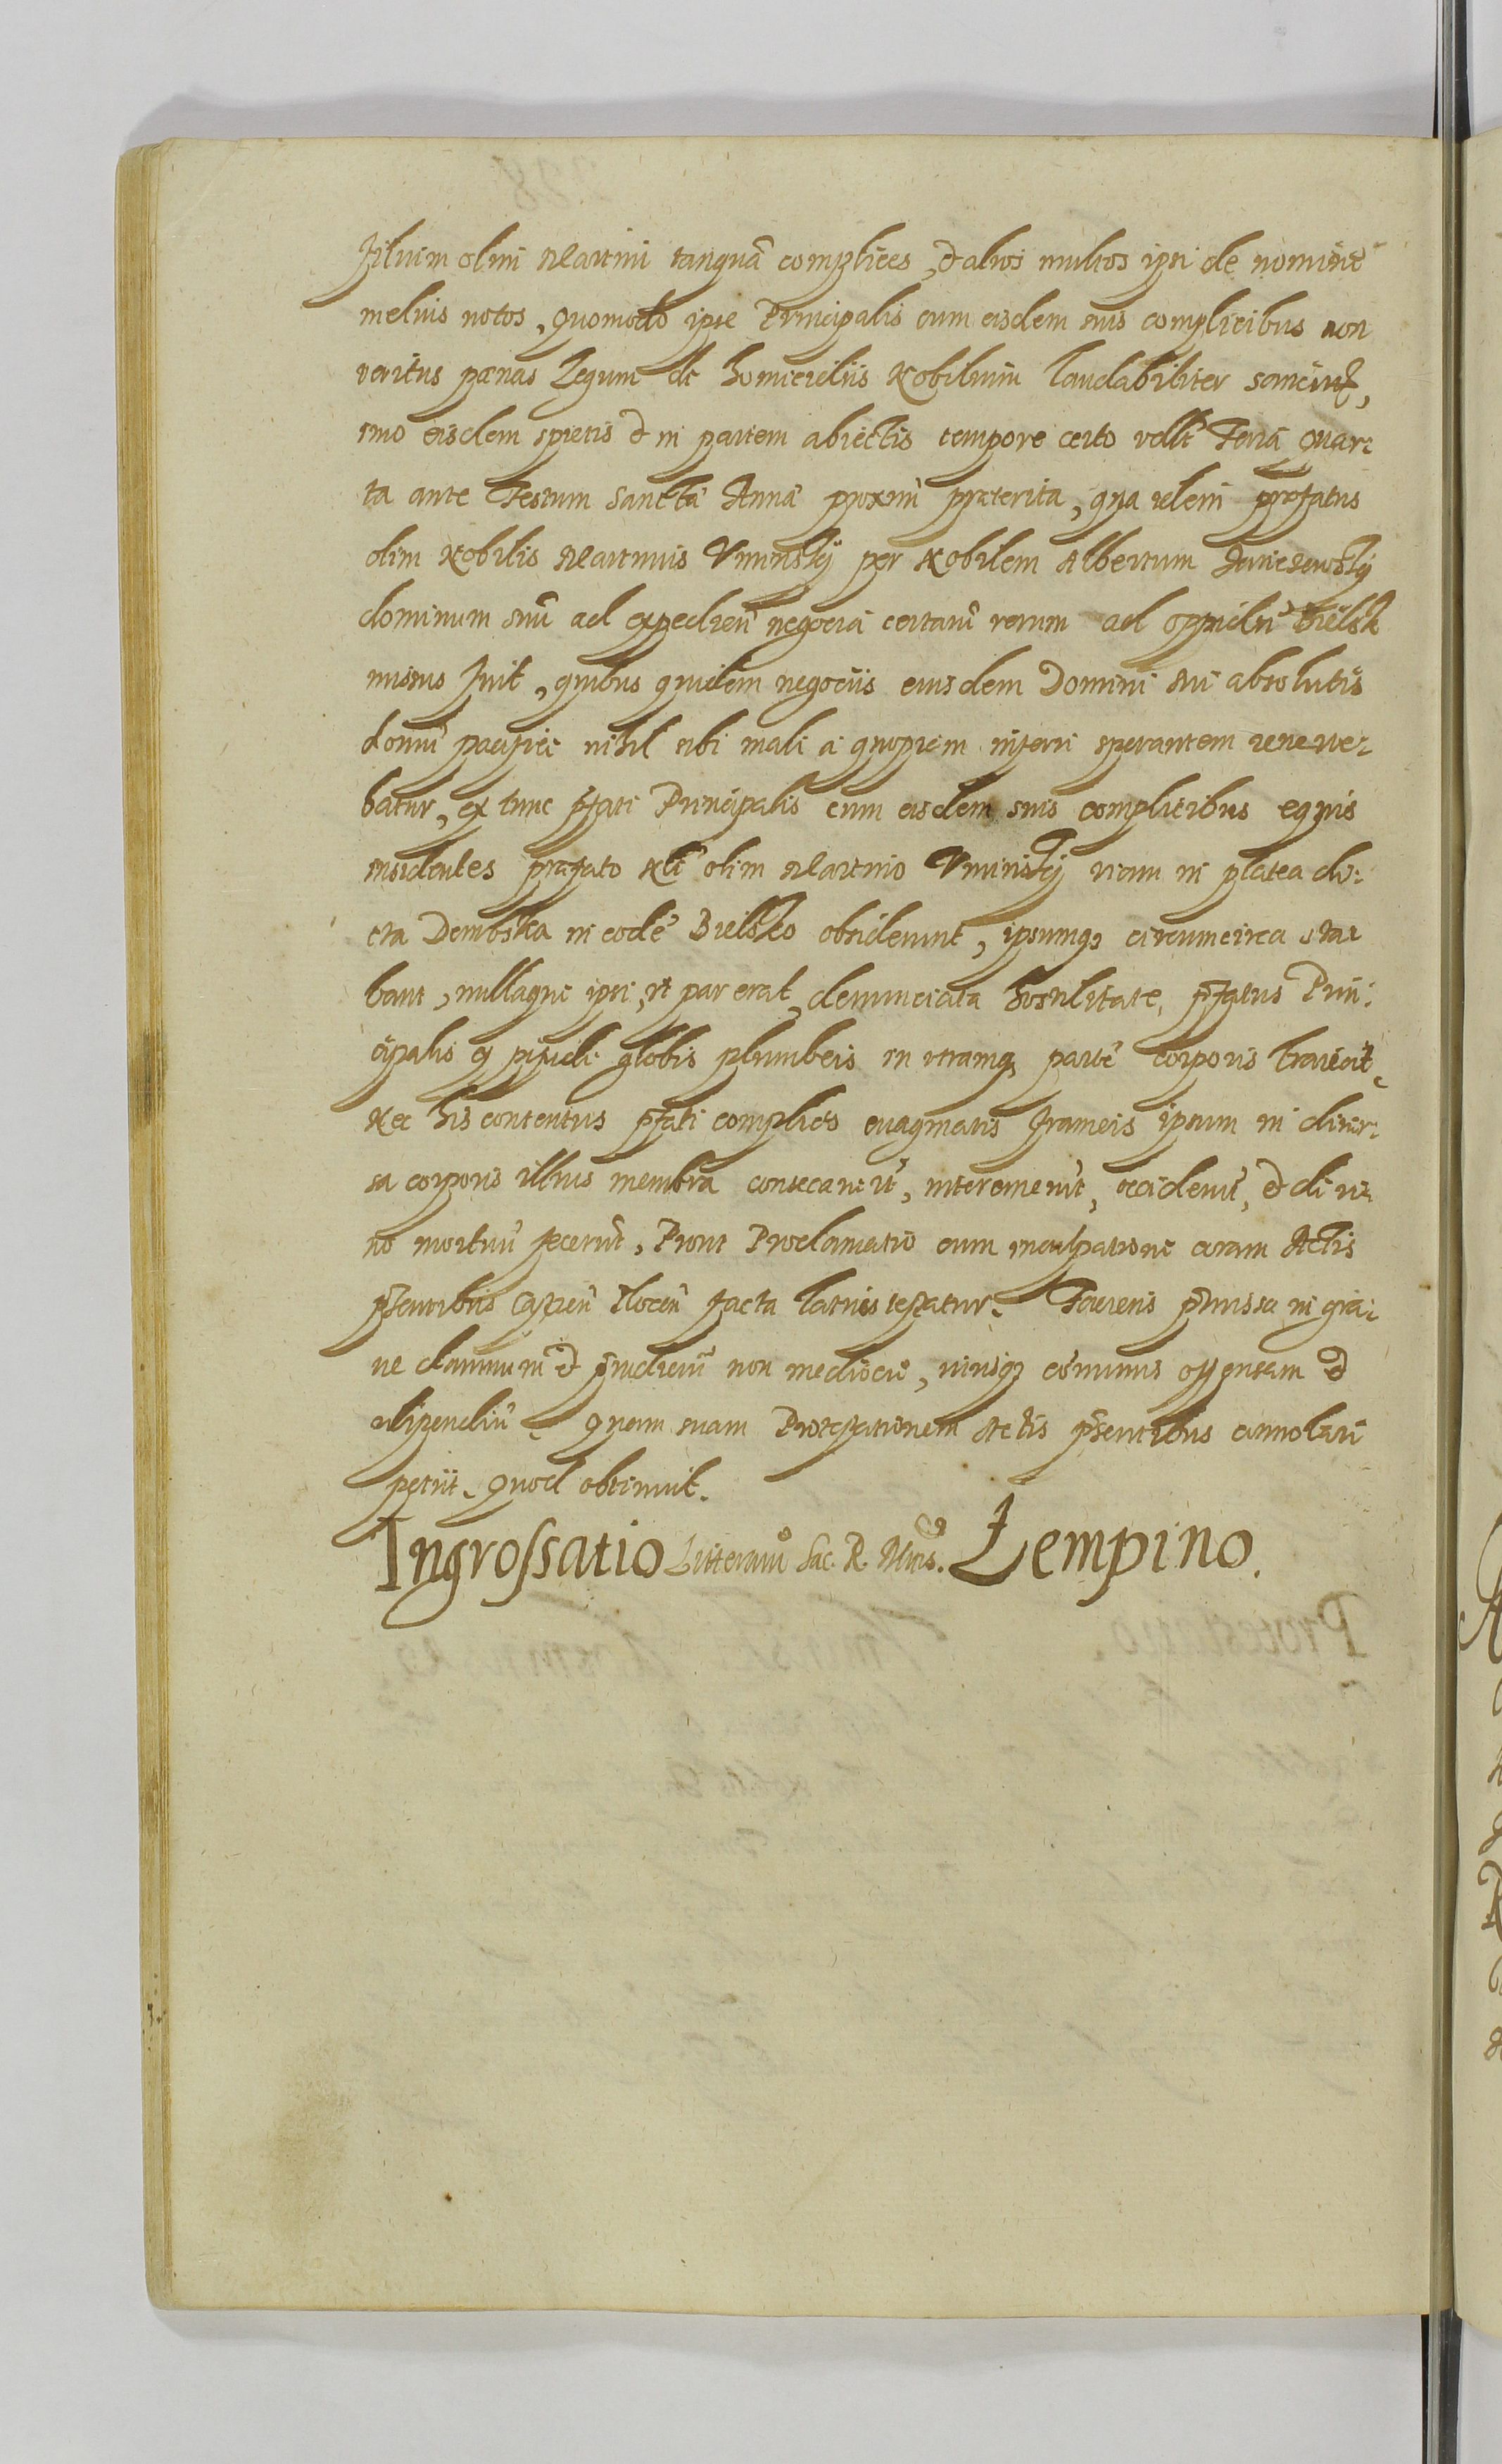 filium olim Martini tanquã complices, et alios multos ipsi de nomine
melius notos, Quomodo ipse Principalis cum eisdem suis complicibus non
veritus pænas Legum de homicidiis Nobilium laudabiliter sancitas,
imo eisdem spretis et in partem abiectis tempore certo vdlt Feria Quar-
ta ante Festum Sanctæ Annæ proximè præterita, qua idem præfatus
olim Nobilis Martinus Vminskÿ per Nobilem Albertum
dominum suũ ad expedienđ negocia certarũ rerum ad oppidũ Bielsk
missus fuit, quibus quidem negociis eiusdem Domini sui absolutis
domũ pacificè nihil sibi mali a quopiam inferri sperantem reverte-
batur, ex tunc pfati Principalis cum eisdem suis complicibus equis
insidentes præfato Nli olim Martino Vminskÿ viam in platea di-
cta Dembska in eodẽ Bielsko obsiderunt, ipsumq3 circumcirca sta-
bant, nullaque ipsi, vt par erat, denunciata hostilitate, pfatus Prin-
cipalis ex pixide globis plumbeis in vtramq3 partẽ corporis traiecit,
Nec his contentus pfati complices evaginatis frameis ipsum in diver-
sa corporis illius membra consecaverũt, interemerũt, occiderũt, et de vi-
vo mortuũ fecerũt, Prout Proclamatio cum inculpatione coram Actis
pñtibus Capitñ facta latius testatur. Faciens pmissa in gra-
ve damnum et piudiciũ non mediocre, iurisq3 cõmunis offensam et
vilipendiũ. Quam suam Protestationem Actis pñtibus annotari
petiit. Quod obtinuit.
Ingrossatio Litterarũ Sac. R. Mtis. Łempino.